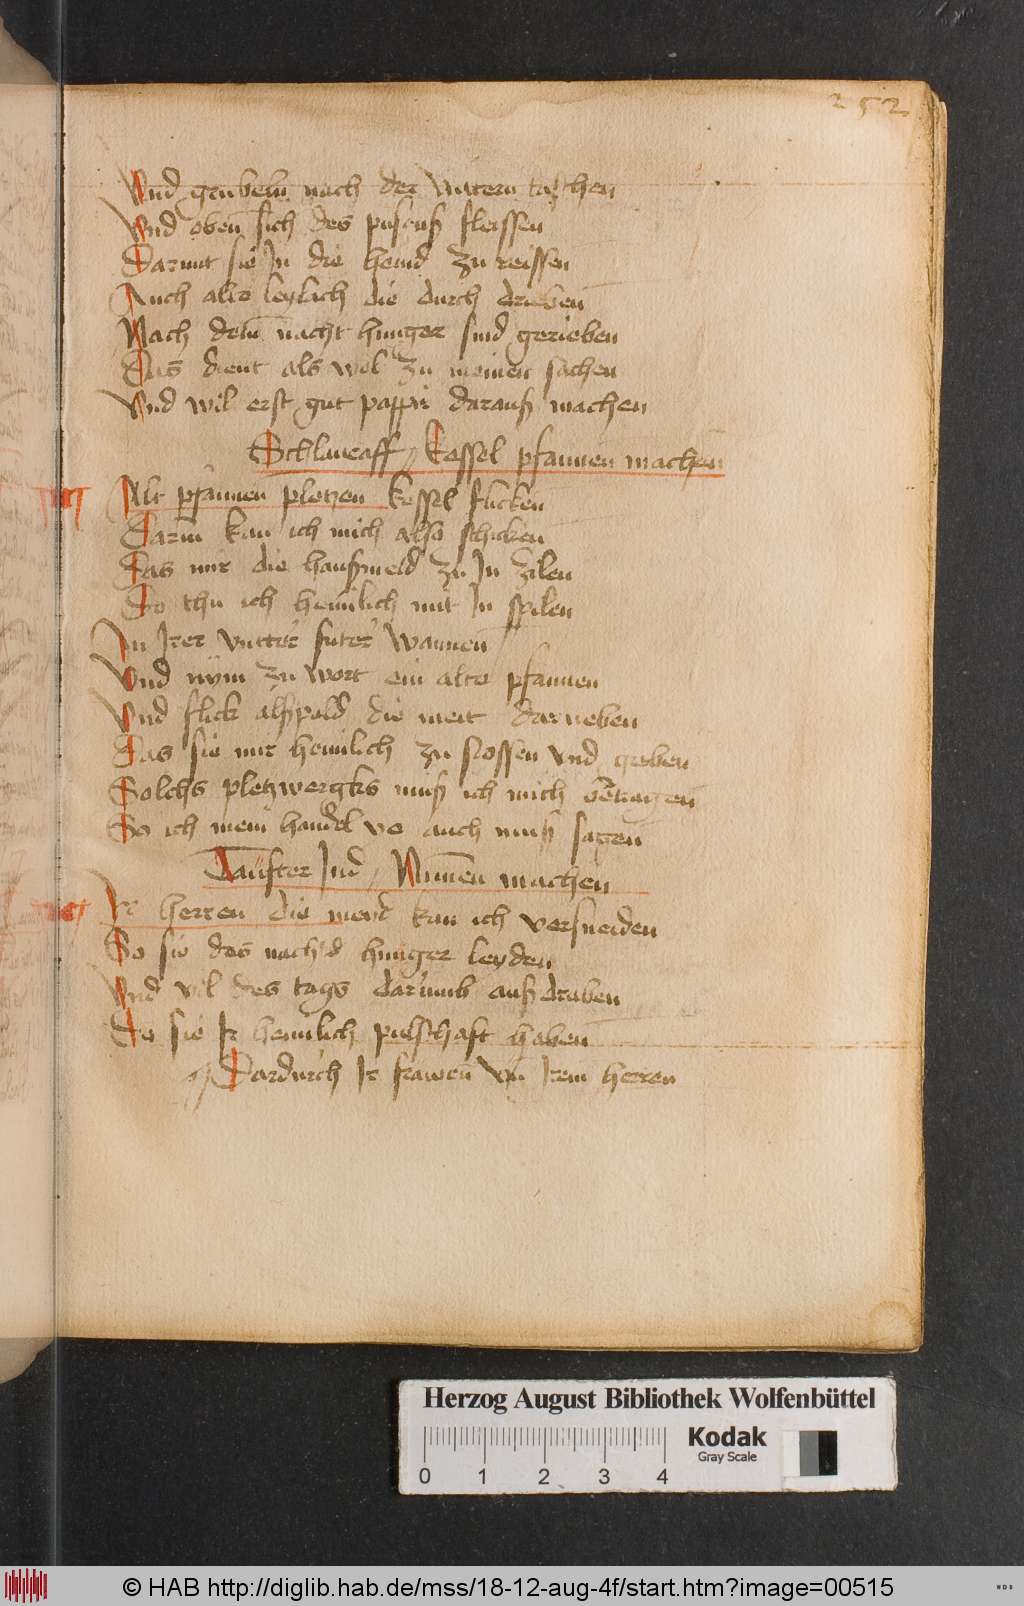 252
Vnd grubeln nach der vntern taschen
Vnd oben sich des pusems fleissen
Darmit sie In die hemd zu reissen
Auch alte leylich die durch driben
Nach dem nacht hunger sind gerieben
Das dient als wol zu meinen sachen
Vnd wil erst gut pappir darauß machen
Schlweaff / Kessel pfannen machen
Alt pfannen pletzen kessel flicken
Darin kan ich mich also schicken
Das mir die haußmeid zu In zilen
So thu ich heimlich mit In spilen
In Irer vntter futer wannen
Vnd nym zu wort ein alte pfannen
Vnd flick alßpald die meit darneben
Das sie mir heimlich zu stossen vnd geben
Solchs pletzwergks muß ich mich betragen
So ich mein handel ye auch muß sagen
Taufter Jud / Nunnen machen
Ir herren die meyd kan ich versneiden
So sie des nachtes hunger leyden
Vnd vil des tags darumb auß draben
Do sie Ir heimlich pulschaft haben
Dardurch Ir frawen vn Irem herren
Herzog August Bibliothek Wolfenbüttel
Kodak
Gray Scale
0 1 2 3 4
© HAB http://diglib.hab.de/mss/18-12-aug-4f/start.htm?image=00515